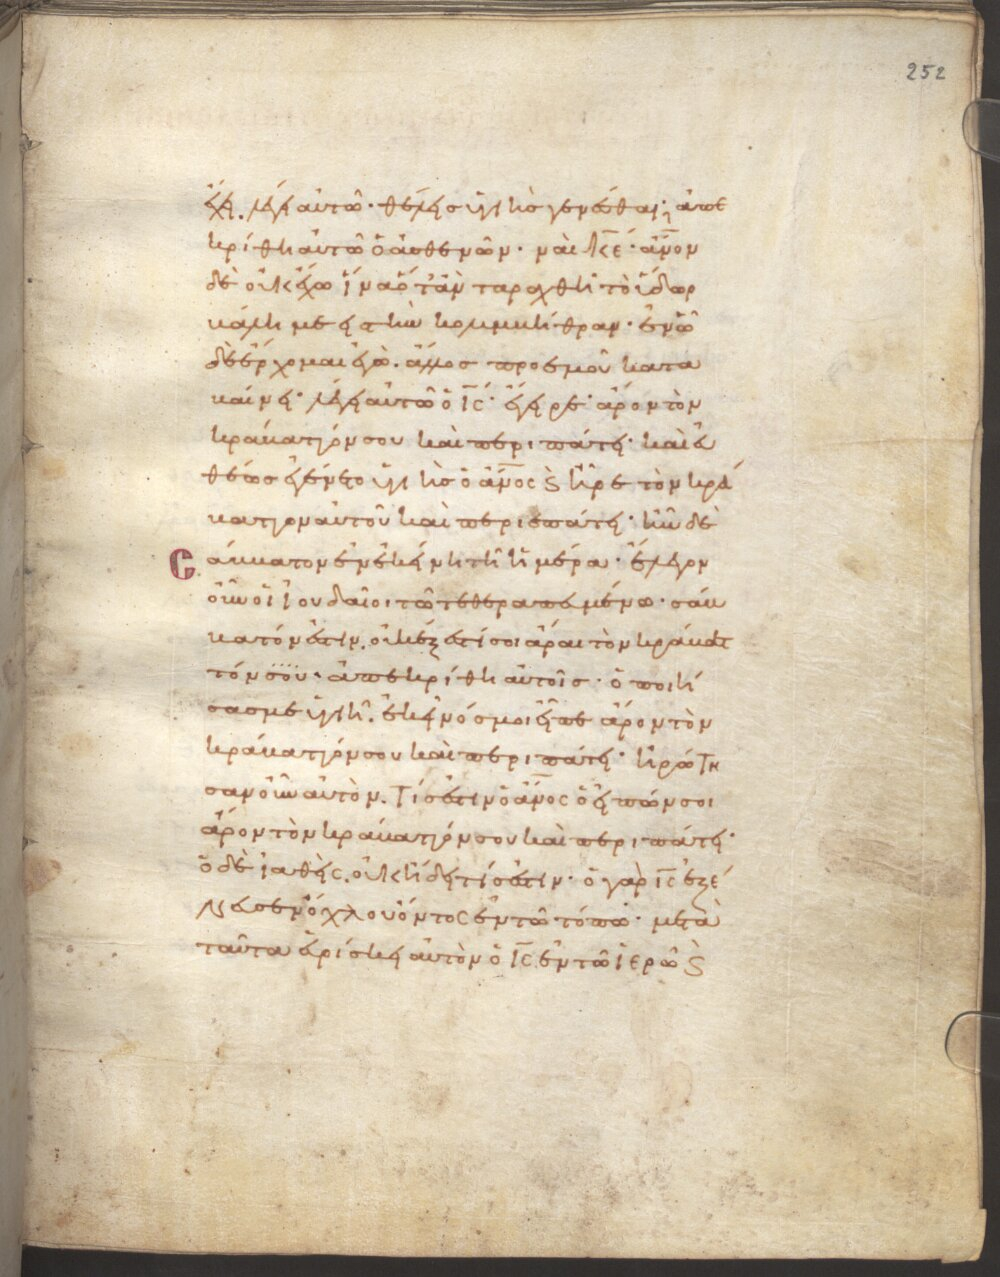 252
ἔχει. λέγει αὐτῶ· θέλεις ὑγιὴς γενέσθαι; ἀπε
κρίθη αὐτῶ ὁ ἀσθενῶν· ναὶ κ̅ε̅· ἄν̅ον
δὲ οὐκ ἔχω ἵνα ὅταν ταραχθῆ τὸ ὕδωρ
βάλη με εἰς τὴν κολυμβήθραν· ἐν ὧ
δὲ ἔρχομαι ἐγὼ. ἄλλος πρὸ ἐμοῦ κατα
βαίνει· λέγει αὐτῶ ὁ ι̅ς̅· ἔγειρε· ἆρον τὸν
κράβαττόν σου καὶ περιπάτει· καὶ εὐ
θέως ἐγένετο ὑγιὴς ὁ ἄν̅ος ϗ ἦρε τὸν κρά
βαττον αὐτοῦ καὶ περιεπάτει· ἦν δὲ
σάββατον ἐν ἐκείνη τῆ ἡμέρα· ἔλεγον
οὖν οἱ ἰουδαῖοι τῶ τεθεραπευμένω· σάβ
βατόν ἐστιν. οὐκ ἔξεστί σοι ἆραι τὸν κράβατ
τόν σου· ἀπεκρίθη αὐτοῖς· ὁ ποιή
σας με ὑγιῆ. ἐκεῖνός μοι εἶπε ἆρον τὸν
κράβαττόν σου καὶ περιπάτει· ἠρώτη
σαν οὖν αὐτὸν. τίς ἐστιν ὁ ἄν̅ος ὁ εἰπών σοι
ἆρον τὸν κράβαττόν σου καὶ περιπάτει·
ὁ δὲ ἰαθεὶς. οὐκ ἤδει τίς ἐστιν· ὁ γὰρ ι̅ς̅ ἐξέ
νευσεν ὄχλου ὄντος ἐν τῶ τόπω· μετὰ
ταῦτα εὑρίσκει αὐτὸν ὁ ι̅ς̅ ἐν τῶ ἱερῶ ϗ